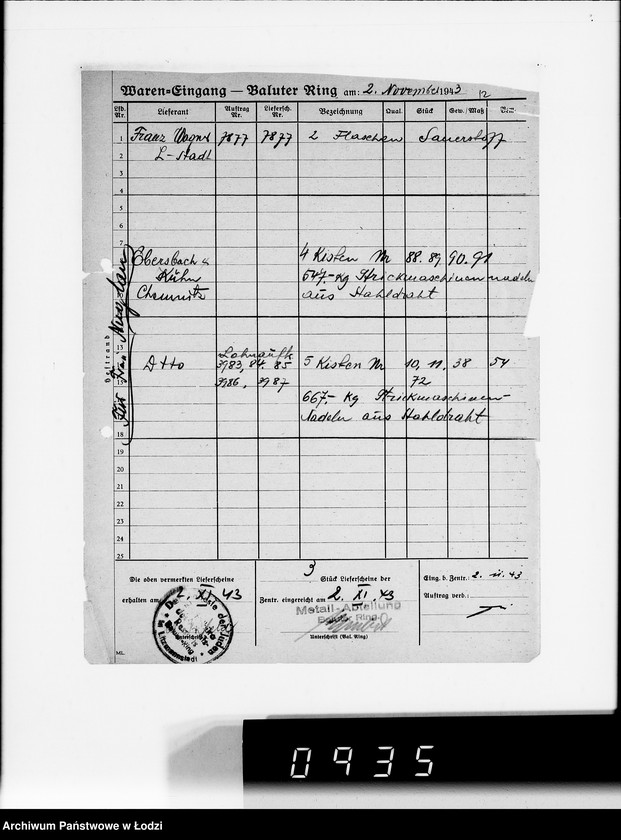 Waren=Eingang — Baluter Ring am: 2. November 1943 12
Lfd. Nr. Lieferant Auftrag Nr. Liefersch. Nr. Bezeichnung Qual. Stück Gew./Maß
1 Franz Wagner 7877 7877 2 Flaschen Sauerstoff
2 L-Stadt
3
4
5
6
7 Ebersbach & 4 Kisten Nr 88. 89 90. 91
Kühn 647.- kg Strickmaschinennadeln
Chemnitz aus Stahldraht
Für Frau
Heftrand
13 Lohnauftr.
Dtto 3983, 84. 85 5 Kisten Nr 10, 11, 38 54
15 3986, 3987 72
667.- kg Strickmaschinen-
Nadeln aus Stahldraht
18
19
20
21
22
23
24
25
Die oben vermerkten Lieferscheine
erhalten am 2. XI. 43
3 Stück Lieferscheine der
Zentr. eingereicht am 2. XI. 43
Metall-Abteilung
Baluter Ring
Unterschrift (Bal. Ring)
Eing. b. Zentr.: 2. 11. 43
Auftrag verb.:
der Juden
in Litzmannstadt
ML.
0935
Archiwum Państwowe w Łodzi